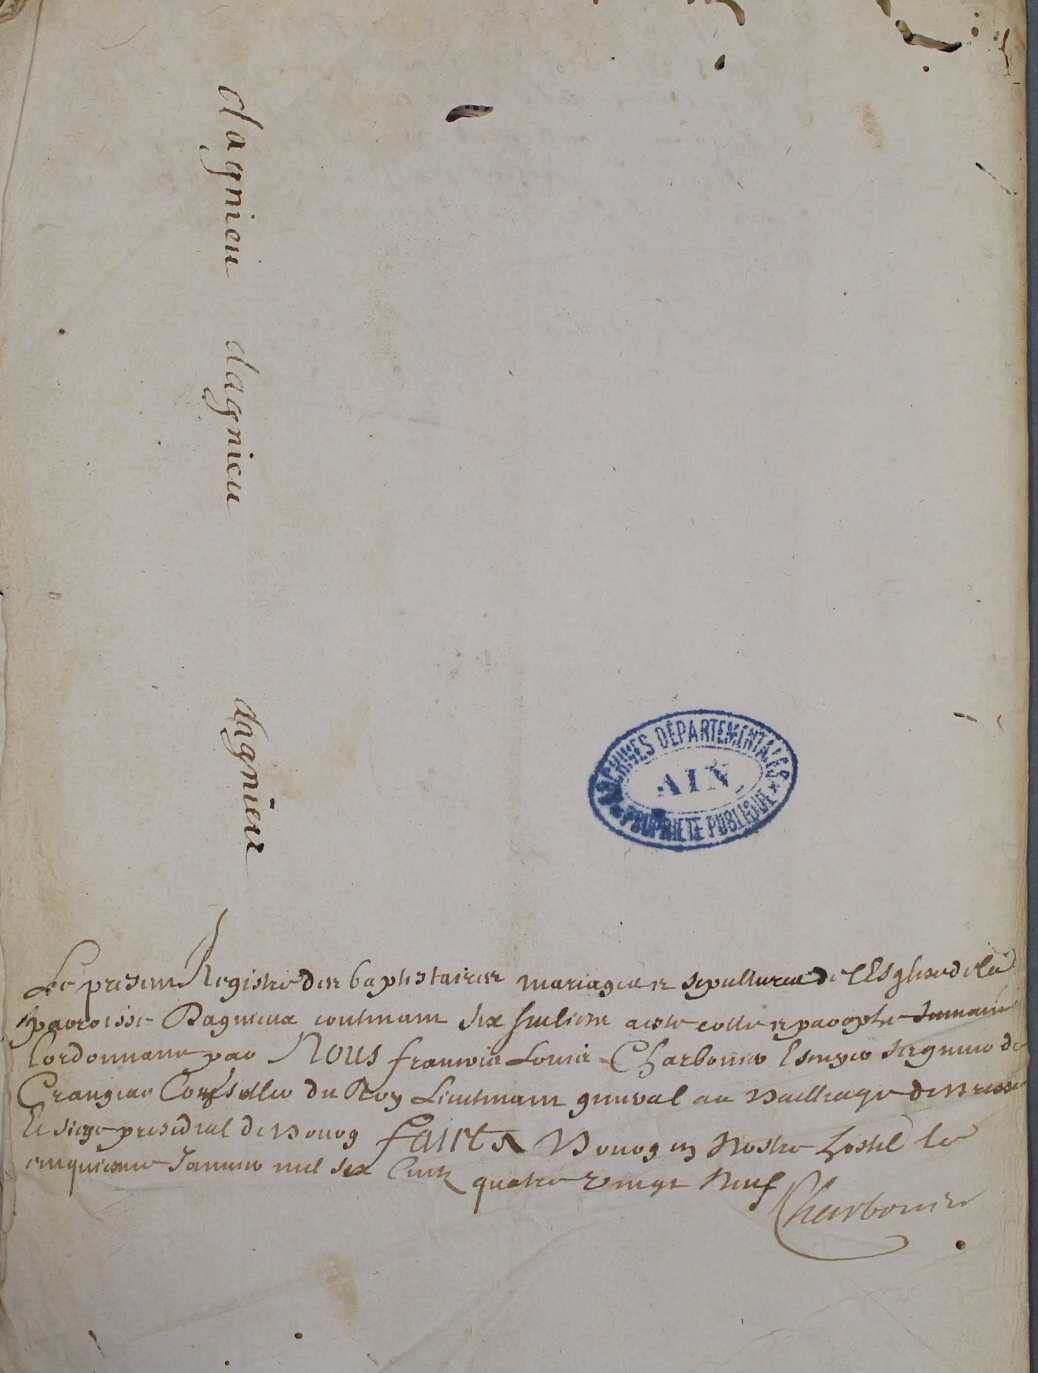 dagnieu dagnieu dagnieux
ARCHIVES DÉPARTEMENTALES
AIN
PROPRIÉTÉ PUBLIQUE
Le present Registre des baptistaires mariages et sepultures de l'Esglise de la
parroisse Dagnieux contenant six feulietz a este cotte et paraphe suivant
lordonnance par Nous francois Louis Charbonnier Escuyer seigneur de
Crangeac Conseiller du Roy Lieutenant general au Bailliage de Bresse
et siege presidial de Bourg faict a Bourg en Nostre hostel le
cinquiesme Janvier mil six Cent quatre vingt Neuf
Charbonnier